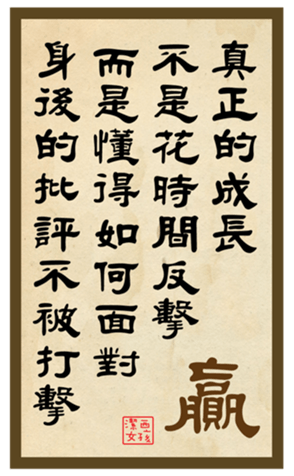 真正的成長
不是花時間反擊
而是懂得如何面對
身後的批評不被打擊
贏
西孩
潔女